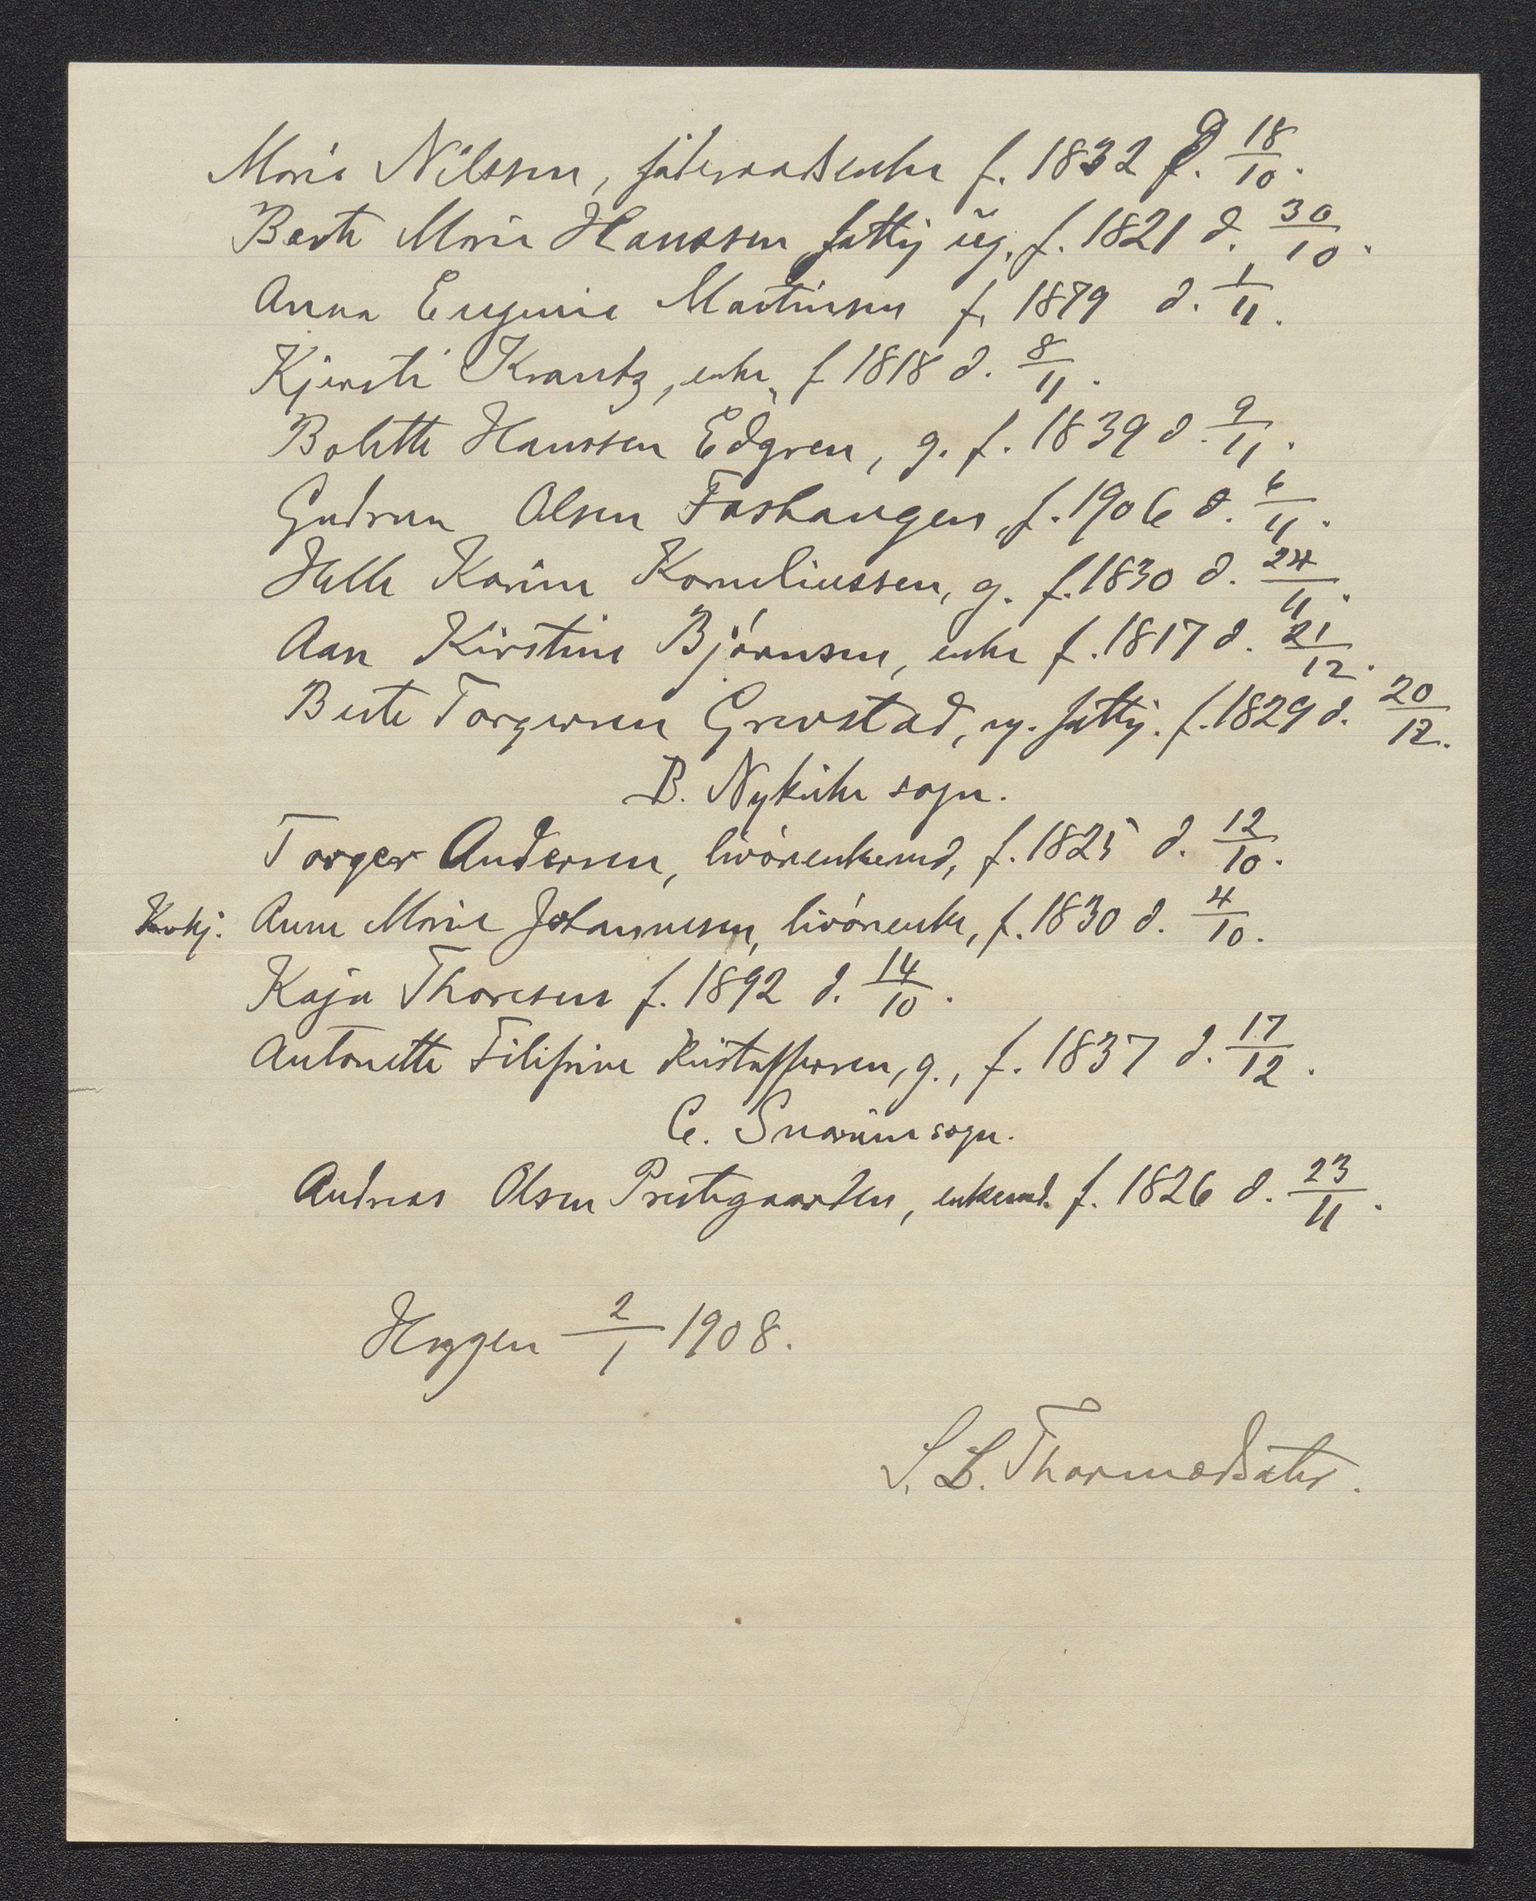 Marie Nilssen, føderaadsenke f. 1832 d. 18/10.
Berte Marie Hanssen fattig ug. f. 1821 d. 30/10.
Anna Eugenie Martinsen f. 1879 d. 1/11.
Kjersti Krantz, enke, f 1818 d. 8/11.
Bolette Hanssen Edgren, g. f. 1839 d. 9/11.
Gudrun Olsen Foshaugen, f. 1906 d. 6/11.
Helle Karine Korneliussen, g. f. 1830 d. 24/11.
Aan Kirstine Bjørnsen, enke f. 1817 d. 21/12.
Berte Torgersen Grevstad, ug. fattig. f. 1829 d. 20/12.
B. Nykirke sogn.
Torger Andersen, livørenkemd, f. 1825 d. 12/10.
Anne Marie Johannesen, livørenke, f. 1830 d. 4/10.
Kaja Thoresen f. 1892 d. 14/10.
Antonette Filipine Kristoffersen, g., f. 1837 d. 17/12.
C. Snarum sogn.
Andreas Olsen Prestegaarden, enkemd. f. 1826 d. 23/11.
Heggen 2/1 1908.
S. L. Thormodsæter.